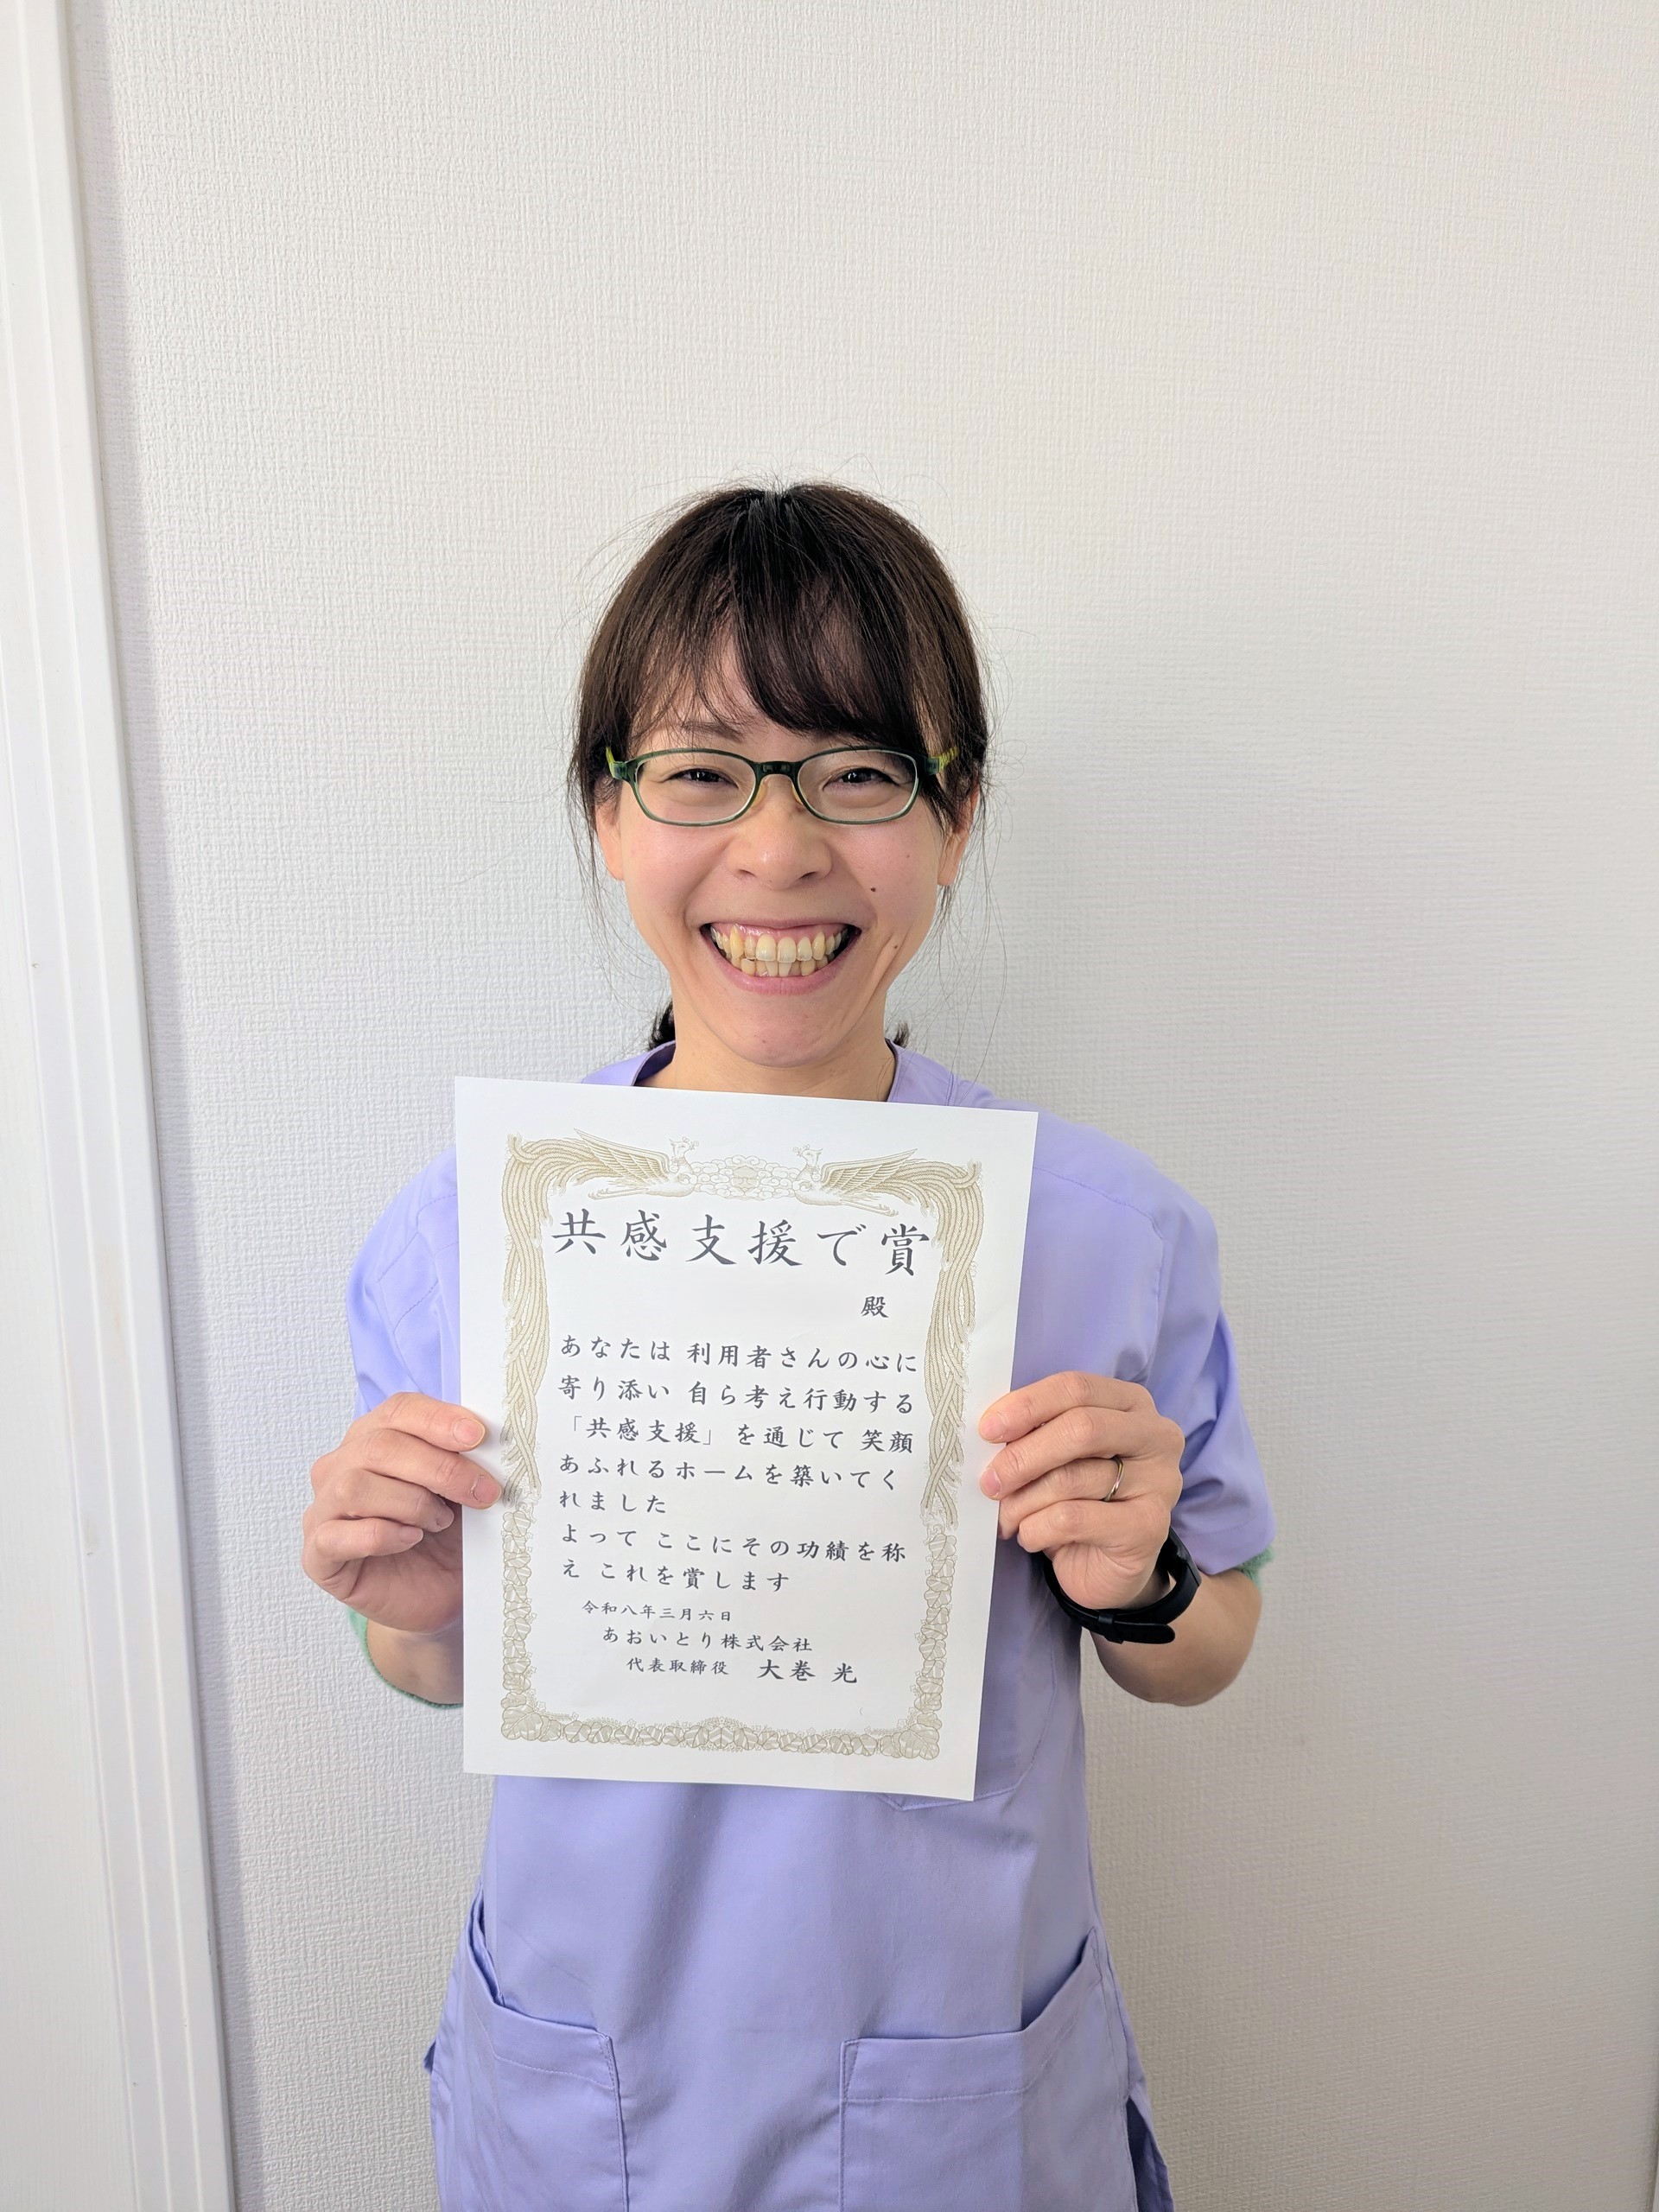 共感支援で賞
殿
あなたは 利用者さんの心に
寄り添い 自ら考え行動する
「共感支援」を通じて 笑顔
あふれるホームを築いてく
れました
よって ここにその功績を称
え これを賞します
令和八年三月六日
あおいとり株式会社
代表取締役 大巻 光